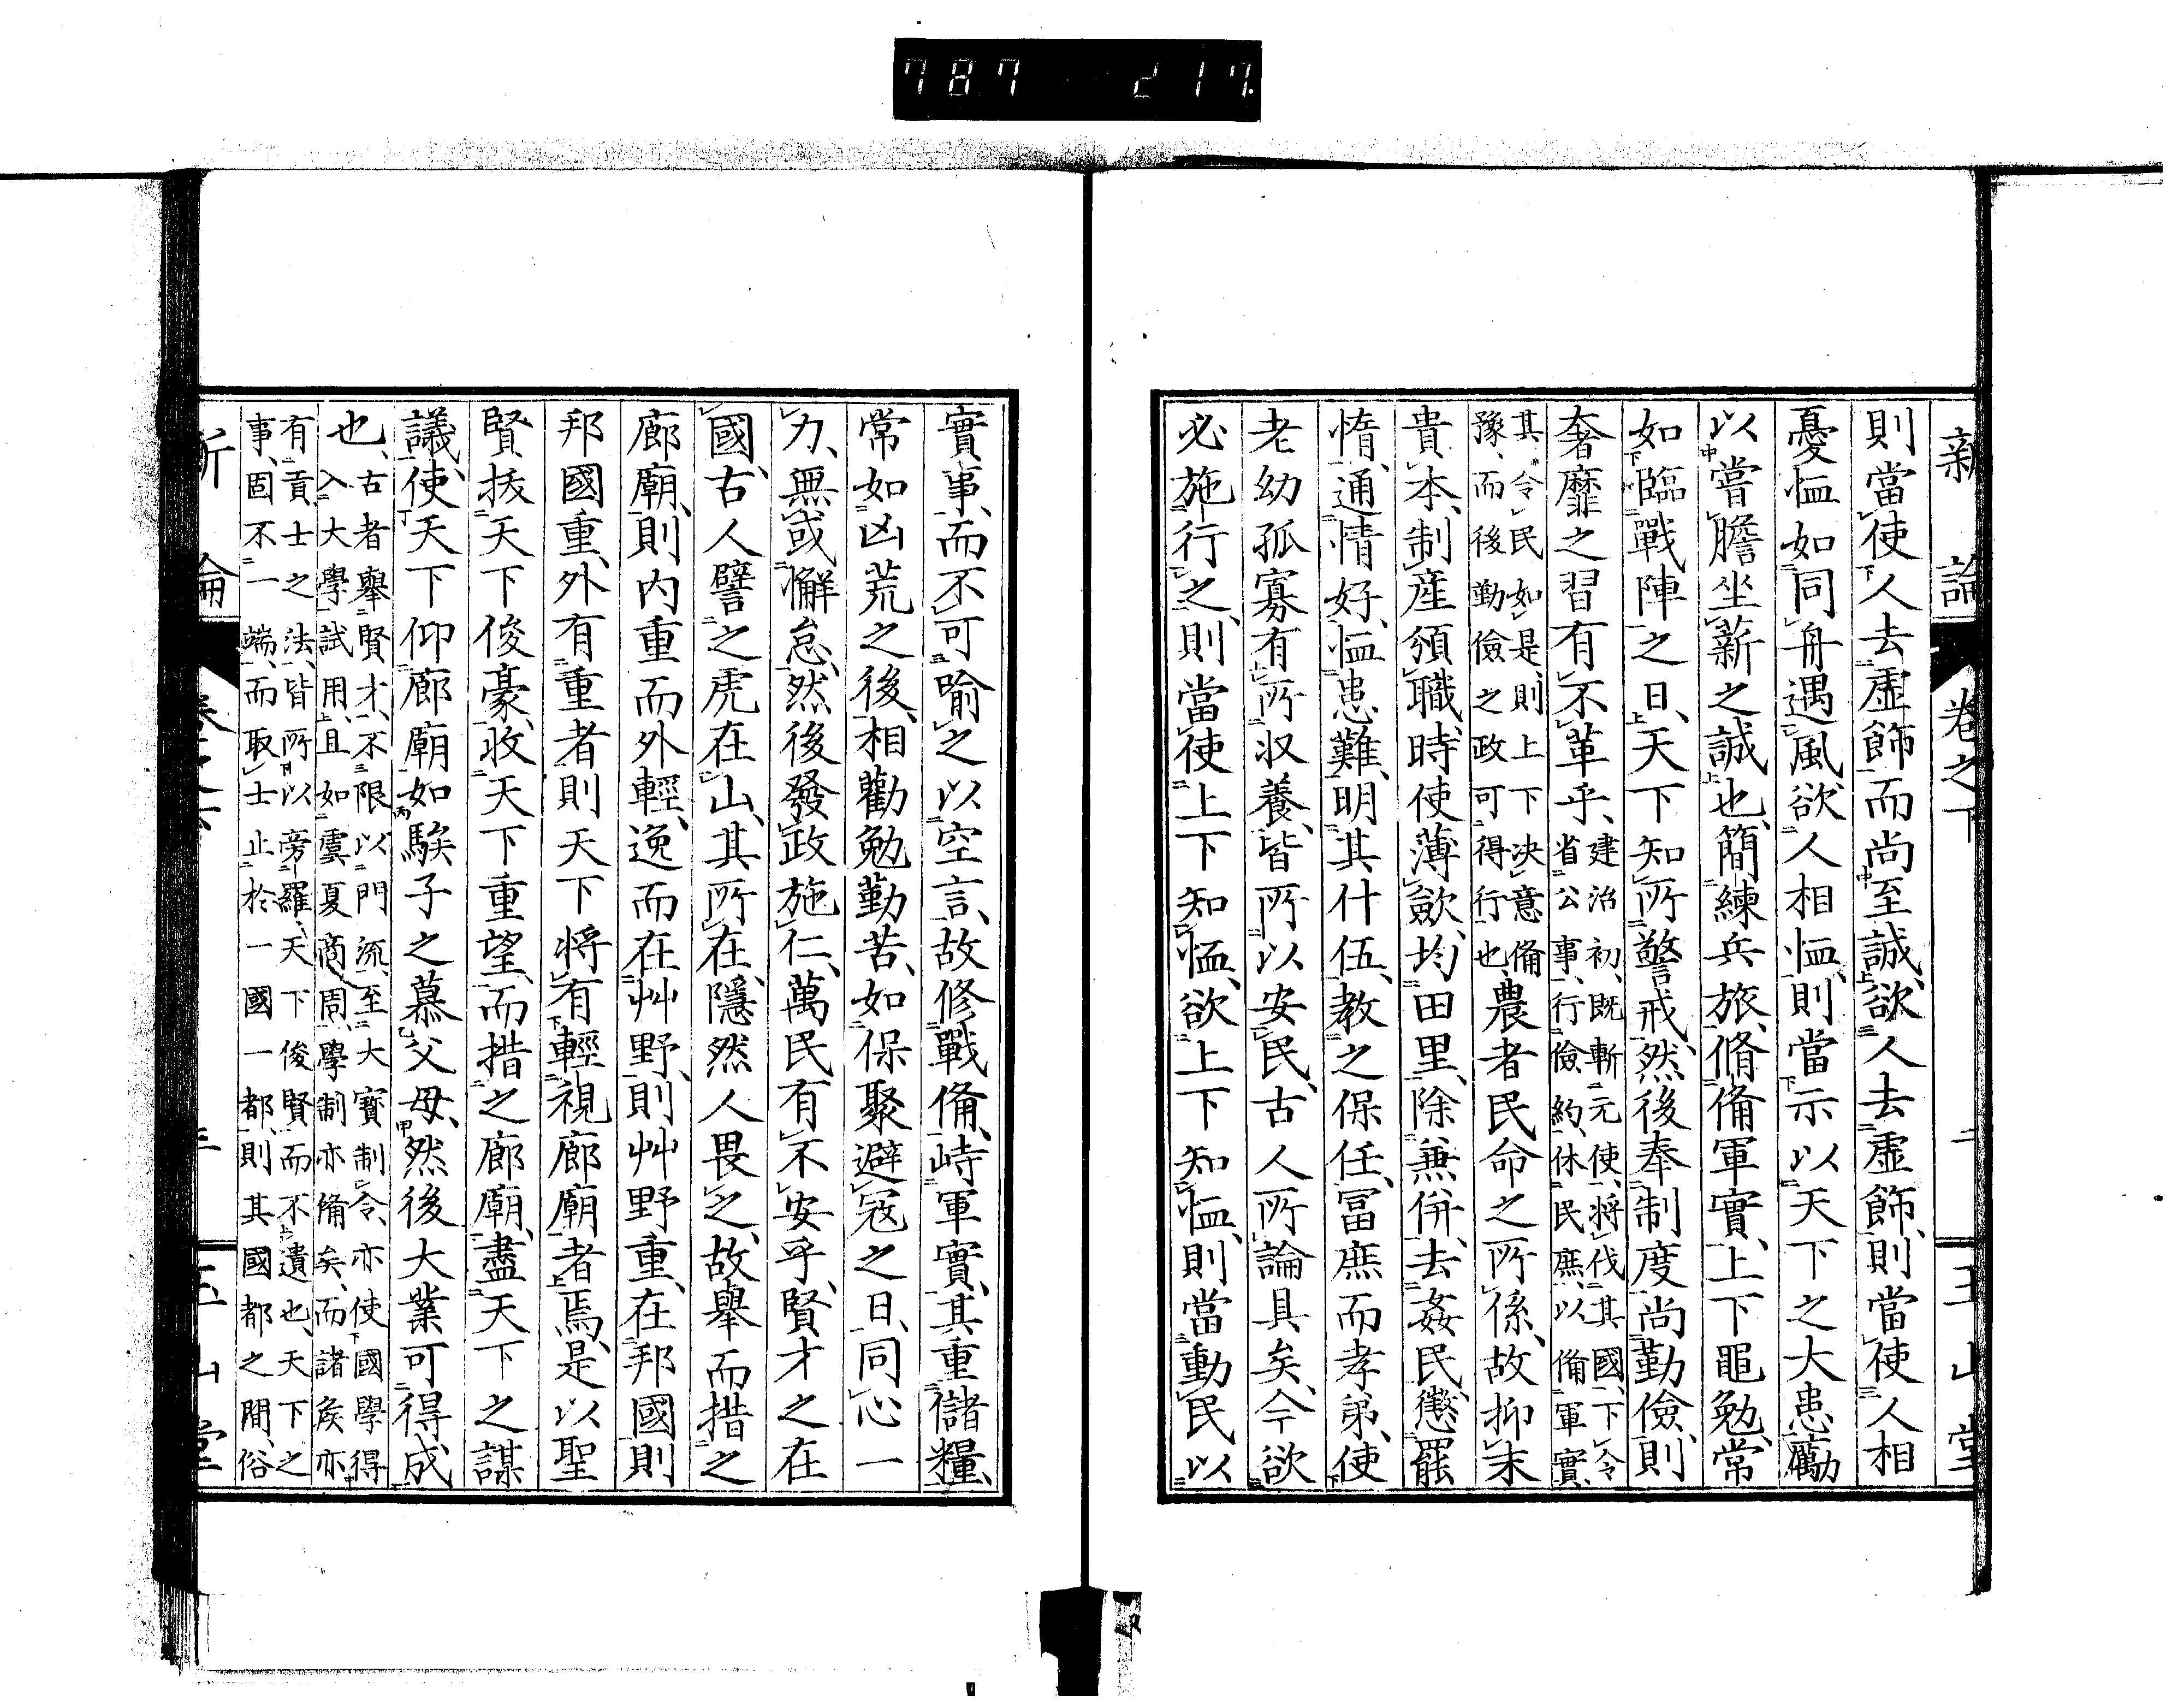 787 217
新論 卷之下 玉山堂
則當使人去虛飾而尚至誠、欲人去虛飾、則當使人相
憂恤如同舟遇風、欲人相恤、則當示以天下之大患、勵
以嘗膽坐薪之誠也、簡練兵旅、脩備軍實、上下黽勉、常
如臨戰陣之日、天下知所警戒、然後奉制度、尚勤儉、則
奢靡之習有不革乎、
建治初、既斬元使、將伐其國、下令
省公事、行儉約、休民庶、以備軍實、
其令民如是、則上下決意備
豫、而後勤儉之政可得行也、
農者民命之所係、故抑末
貴本、制產頒職、時使薄歛、均田里、除兼併、去姦民、懲罷
惰、通情好、恤患難、明其什伍、教之保任、冨庶而孝弟、使
老幼孤寡有所收養、皆所以安民、古人所論具矣、今欲
必施行之、則當使上下知恤、欲上下知恤、則當動民以
實事、而不可喻之以空言、故修戰備、峙軍實、其重儲糧、
常如凶荒之後、相勸勉勤苦、如保聚避寇之日、同心一
力、無或懈怠、然後發政施仁、萬民有不安乎、賢才之在
國、古人譬之虎在山、其所在、隱然人畏之、故舉而措之
廊廟、則內重而外輕、逸而在艸野、則艸野重、在邦國、則
邦國重、外有重者則天下將有輕視廊廟者焉、是以聖
賢拔天下俊豪、收天下重望、而措之廊廟、盡天下之謀
議、使天下仰廊廟如騃子之慕父母、然後大業可得成
也、
古者舉賢才、不限以門流、至大寶制令、亦使國學得
入大學試用、且如虞夏商周、學制亦備矣、而諸矦亦
有貢士之法、皆所以旁羅天下俊賢而不遺也、天下之
事、固不一端、而取士止於一國一都、則其國都之間、俗